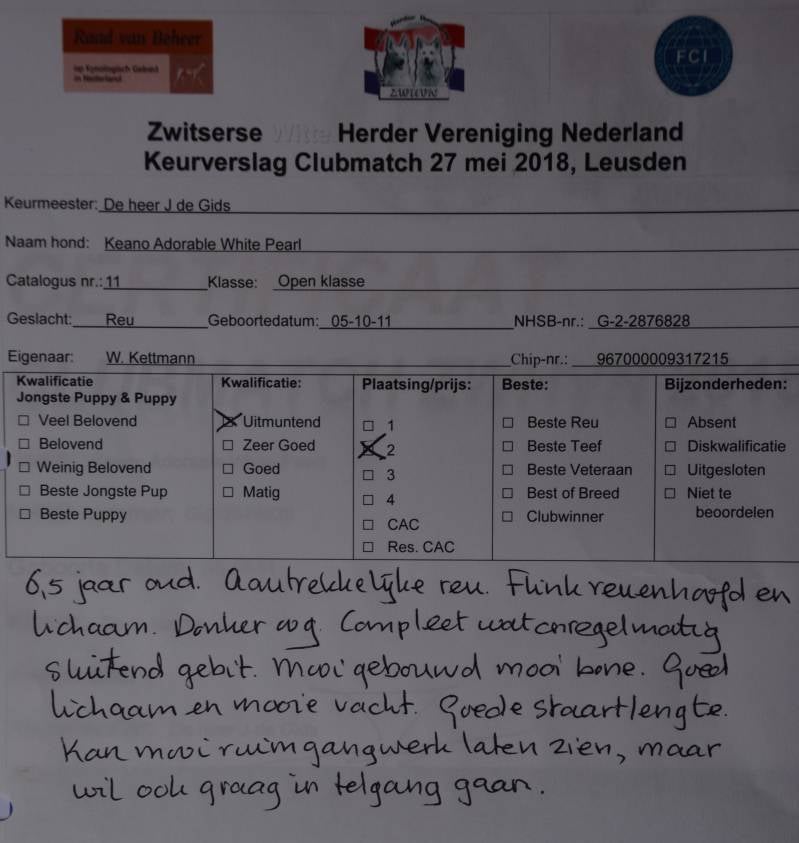 Raad van Beheer
op Kynologisch Gebied
in Nederland
ZWHVN
FCI
Zwitserse Witte Herder Vereniging Nederland
Keurverslag Clubmatch 27 mei 2018, Leusden
Keurmeester: De heer J de Gids
Naam hond: Keano Adorable White Pearl
Catalogus nr.: 11 Klasse: Open klasse
Geslacht: Reu Geboortedatum: 05-10-11 NHSB-nr.: G-2-2876828
Eigenaar: W. Kettmann Chip-nr.: 967000009317215
Kwalificatie
Jongste Puppy & Puppy
Veel Belovend
Belovend
Weinig Belovend
Beste Jongste Pup
Beste Puppy
Kwalificatie:
Uitmuntend
Zeer Goed
Goed
Matig
Plaatsing/prijs:
1
2
3
4
CAC
Res. CAC
Beste:
Beste Reu
Beste Teef
Beste Veteraan
Best of Breed
Clubwinner
Bijzonderheden:
Absent
Diskwalificatie
Uitgesloten
Niet te
beoordelen
6,5 jaar oud. Aantrekkelijke reu. Flink reuenhoofd en
lichaam. Donker oog. Compleet wat onregelmatig
sluitend gebit. Mooi gebouwd mooi bone. Goed
lichaam en mooie vacht. Goede staartlengte.
Kan mooi ruim gangwerk laten zien, maar
wil ook graag in telgang gaan.